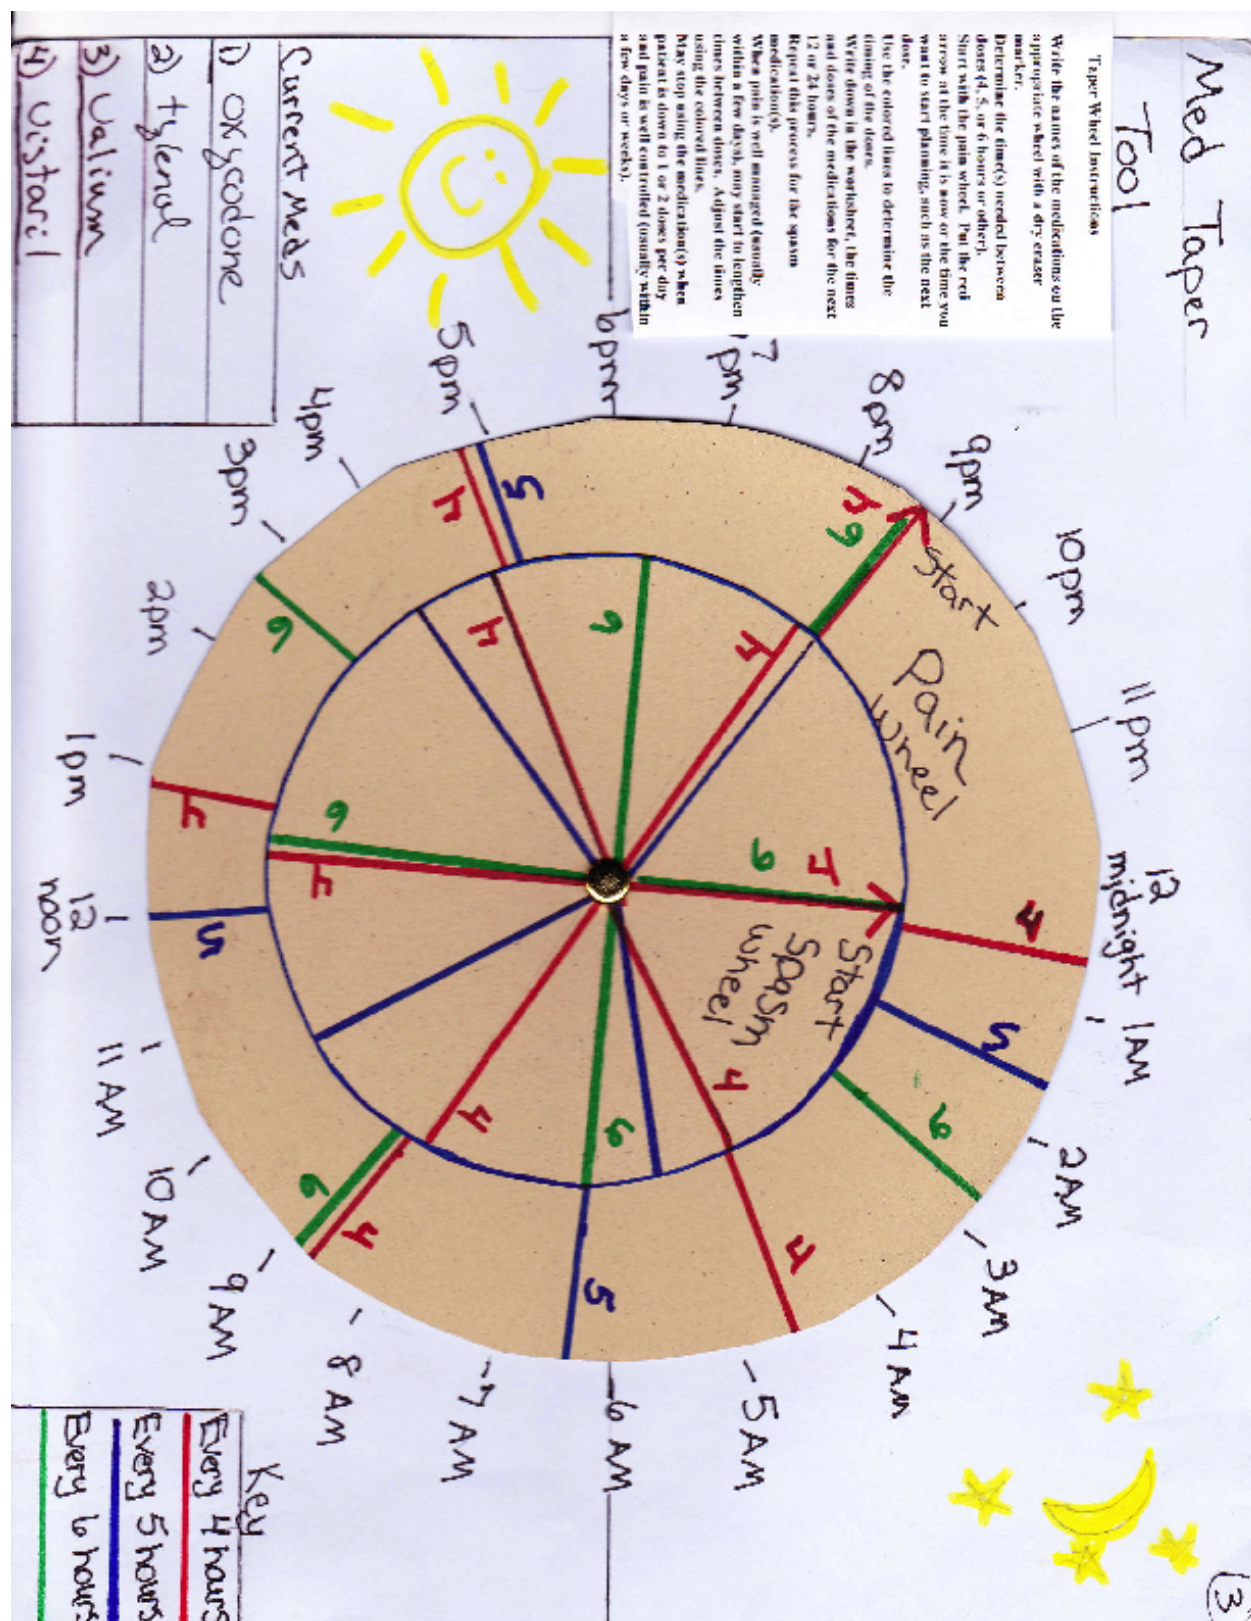 Med Taper
Tool
Taper Wheel Instructions
Write the names of the medications on the
appropriate wheel with a dry eraser
marker.
Determine the time(s) needed between
doses (4, 5, or 6 hours or other).
Start with the pain wheel. Put the red
arrow at the time is now or the time you
want to start planning, such as the next
dose.
Use the colored lines to determine the
timing of the doses.
Write down in the worksheet, the times
and doses of the medications for the next
12 or 24 hours.
Repeat this process for the spasm
medication(s).
When pain is well managed (usually
within a few days), may start to lengthen
times between doses. Adjust the times
using the colored lines.
May stop using the medication(s) when
patient is down to 1 or 2 doses per day
and pain is well controlled (usually within
a few days or weeks).
Current Meds
1) oxycodone
2) tylenol
3) Valium
4) Vistaril
6pm
7pm
8pm
9pm
10pm
11pm
12
midnight
1AM
2AM
3AM
4AM
5AM
6AM
7AM
8AM
9AM
10AM
11AM
12
noon
1pm
2pm
3pm
4pm
5pm
Start
Pain
Wheel
4
6
4
5
6
4
5
6
4
5
4
6
4
5
Start
Spasm
Wheel
6
4
4
6
4
6
4
4
6
4
Key
Every 4 hours
Every 5 hours
Every 6 hours
3